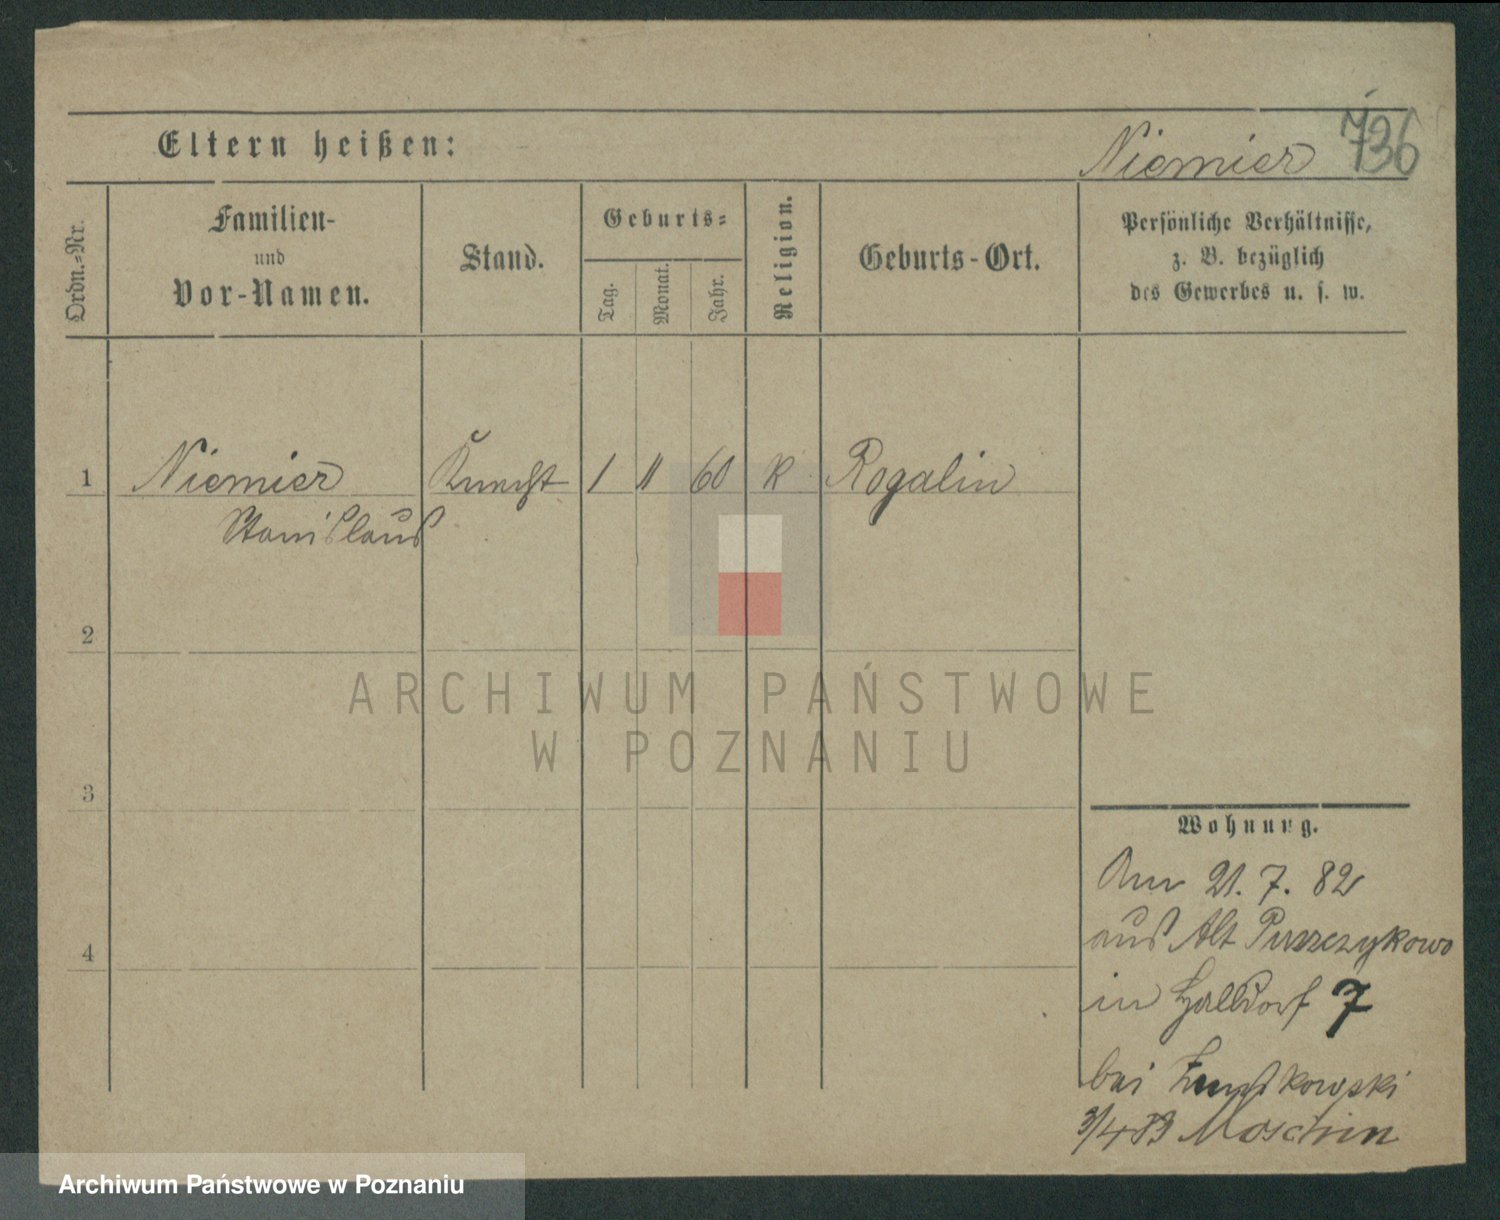 Eltern heißen:
Niemier 736
Ordn.-Nr.
Familien-
und
Vor-Namen.
Stand.
Geburts-
Tag.
Monat.
Jahr.
Religion.
Geburts-Ort.
Persönliche Verhältnisse,
z. B. bezüglich
des Gewerbes u. s. w.
1 Niemier Knecht 1 11 60 K Rogalin
Stanislaus
2
3
4
ARCHIWUM PAŃSTWOWE
W POZNANIU
Wohnung.
Am 21. 7. 82
aus Alt Puszczykowo
in Halldorf 7
bei
3/4 83 Moschin
Archiwum Państwowe w Poznaniu